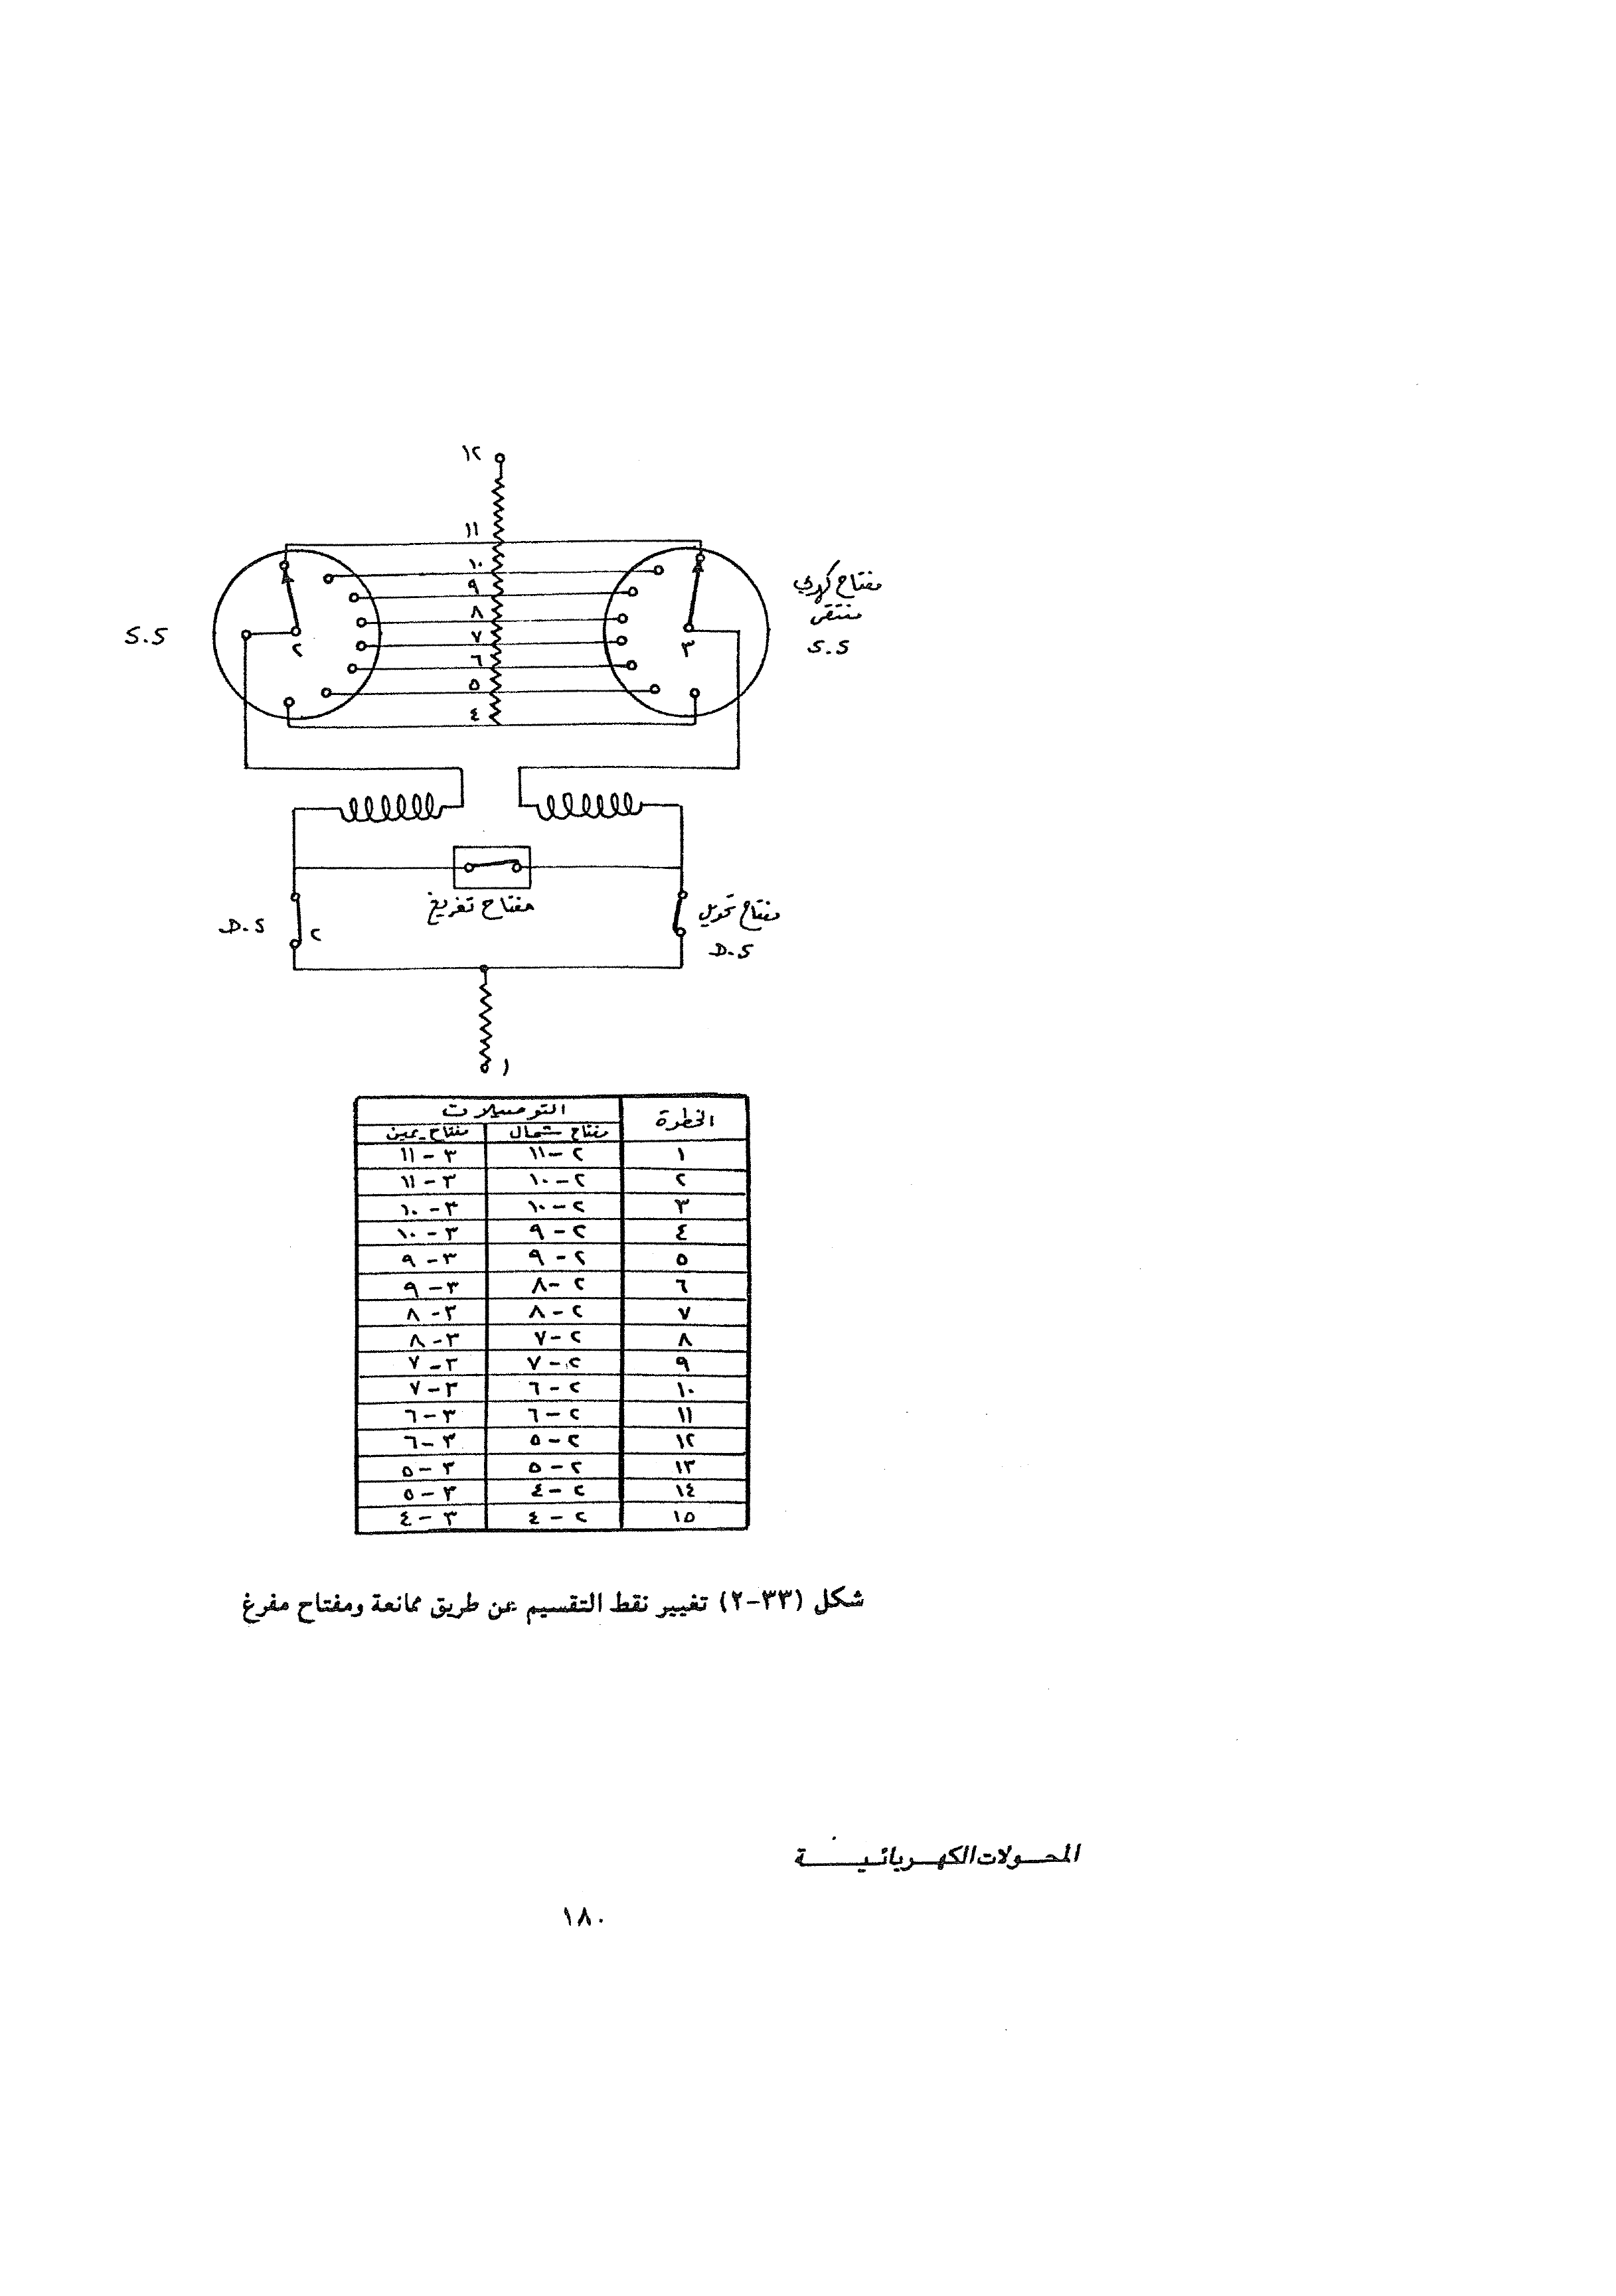 ١٢
١١
١٠
٩
٨
٧
٦
٥
٤
مفتاح كهربي
منتقى
S.S
٣
S.S
٢
مفتاح تحويل
D.S
مفتاح تفريغ
D.S
٢
١
الخطوة التوصيلات
مفتاح شمال مفتاح يمين
١ ٢ – ١١ ٣ – ١١
٢ ٢ – ١٠ ٣ – ١١
٣ ٢ – ١٠ ٣ – ١٠
٤ ٢ – ٩ ٣ – ١٠
٥ ٢ – ٩ ٣ – ٩
٦ ٢ – ٨ ٣ – ٩
٧ ٢ – ٨ ٣ – ٨
٨ ٢ – ٧ ٣ – ٨
٩ ٢ – ٧ ٣ – ٧
١٠ ٢ – ٦ ٣ – ٧
١١ ٢ – ٦ ٣ – ٦
١٢ ٢ – ٥ ٣ – ٦
١٣ ٢ – ٥ ٣ – ٥
١٤ ٢ – ٤ ٣ – ٥
١٥ ٢ – ٤ ٣ – ٤
شكل (٣٣-٢) تغيير نقط التقسيم عن طريق ممانعة ومفتاح مفرغ
المحولات الكهربائية
١٨٠